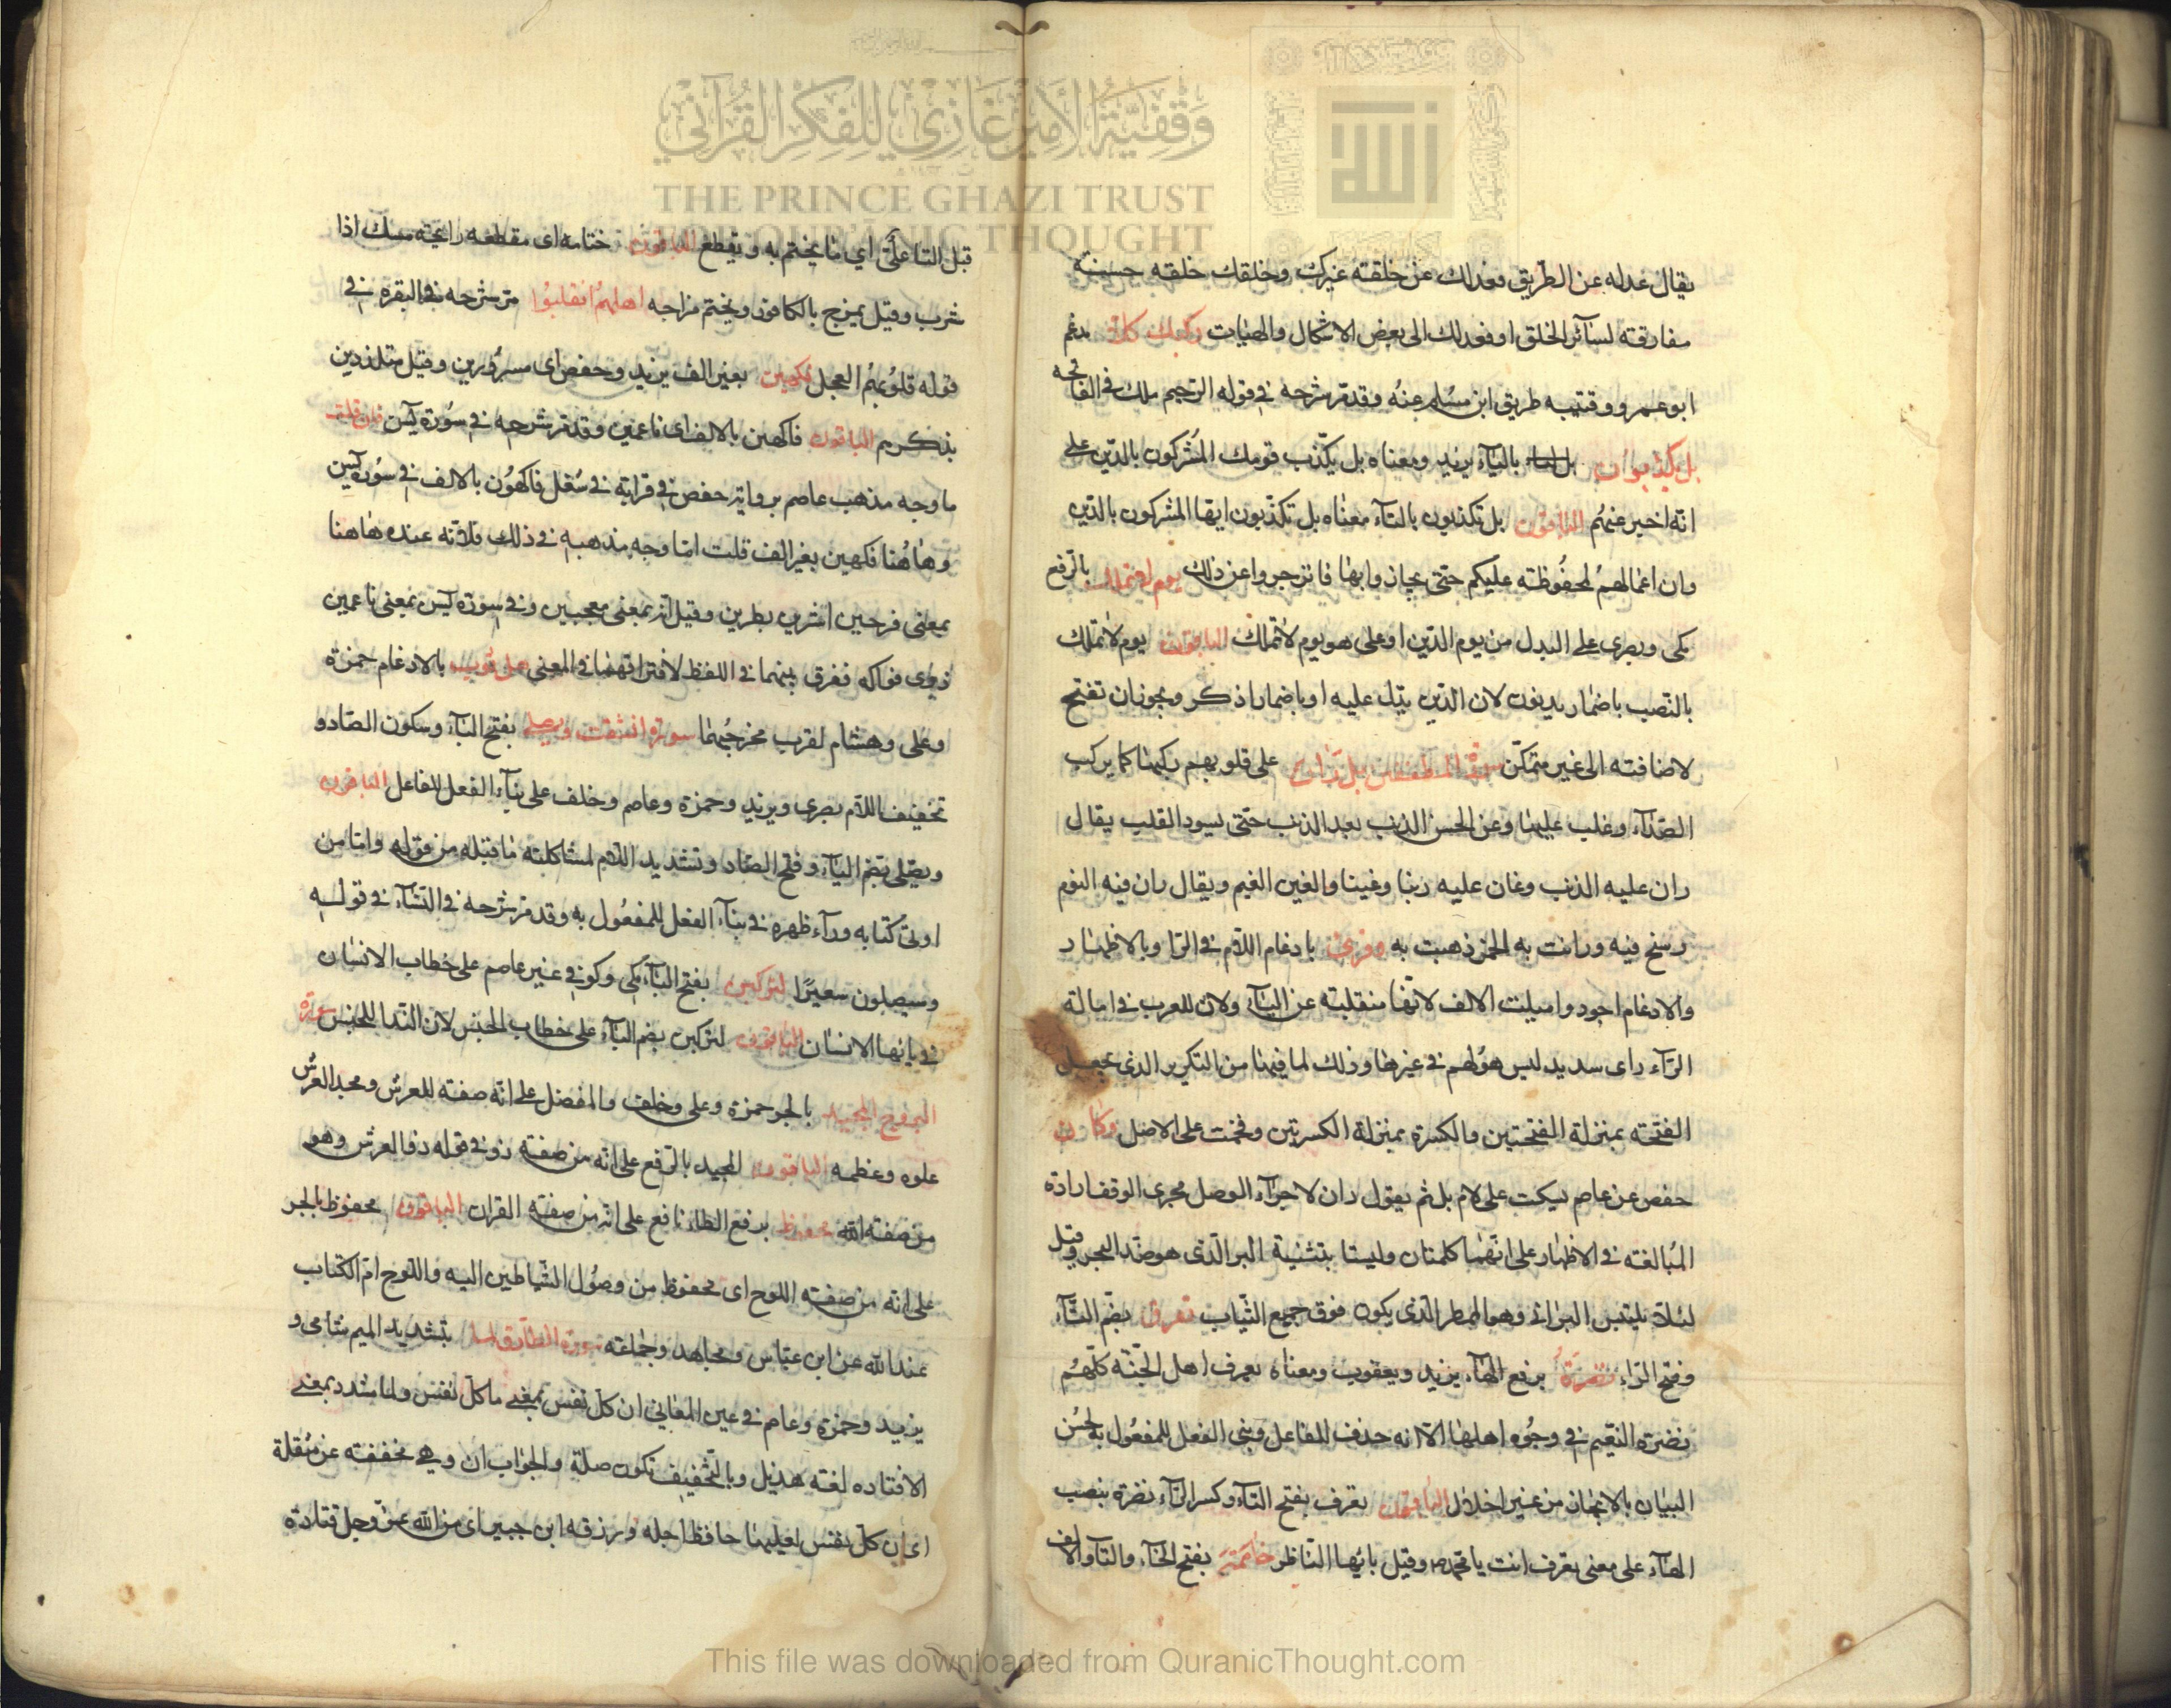 وقفية الأمير غازي للفكر القرآني
THE PRINCE GHAZI TRUST
FOR QUR'ANIC THOUGHT
يقال عدله عن الطريق وعدلك عن خلقته غيرك وخلقك خلقه حسنة
مفارقة لسآئر الخلق او فعدلك الى بعض الاشكال والهيات ركبك كلا مدغم
ابو عمرو وقتيبه طريق ابن مسلم عنه وقد مر شرحه في قوله الرحيم ملك في الفاتحه
بل يكذبون بالياء يزيد ومعناه بل يكذب قومك المشركون بالدين على
انه اخبر عنهم الباقون بل تكذبون بالتآء معناه بل تكذبون ايها المشركون بالدين
وان اعمالهم لمحفوظة عليكم حتى تجازوا بها فانزجروا عن ذلك يوم لا تملك بالرفع
مكى وبصرى على البدل من يوم الدين او على هو يوم لا تملك الباقون يوم لا تملك
بالنصب باضمار يدينون لان الدين يدل عليه او باضمار اذكر ويجوز ان تفتح
لاضافته الى غير متمكن سورة المطففين بل ران على قلوبهم ركبها كما يركب
الصدآء وغلب عليها وعن الحسن الذنب بعد الذنب حتى يسود القلب يقال
ران عليه الذنب وغان عليه رينا وغينا والغين الغيم ويقال ران فيه النوم
رسخ فيه ورانت به الخمر ذهبت به وقرئ بادغام اللام في الرا وبالاظهار
والادغام اجود واميلت الالف لانها منقلبة عن اليآء ولان للعرب في امالة
الرآء راى سديد ليس هو لهم في غيرها وذلك لما فيها من التكرير الذى يجعل
الفتحه بمنزلة الفتحتين والكسرة بمنزلة الكسرتين وفخمت على الاصل وكان
حفص عن عاصم يسكت على لام بل ثم يقول ران لاجرآء الوصل مجرى الوقف ارادة
المبالغه في الاظهار على انهما كلمتان وليستا بتثنية البر الذى هو ضد البحر وقيل
لئلا يلتبس البرانى وهو الممطر الذى يكون فوق جميع الثياب تعرف بضم التآء
وفتح الرآء نضرة برفع الهآء يزيد ويعقوب ومعناه يعرف اهل الجنة كلهم
نضرة النعيم في وجوه اهلها الا انه حذف الفاعل وبنى الفعل للمفعول به لحسن
البيان بالايجاز من غير اخلال الباقون تعرف بفتح التآء وكسر الرآء نضرة بنصب
الهآء على معنى تعرف انت يا محمد وقيل يا ايها الناظر خاتمه بفتح الخآء والتآء والالف
قبل التا على اي ما يختم به ويقطع الباقون ختامه اى مقطعه رايحته مسك اذا
شرب وقيل يمزج بالكافور ويختم مزاجه اهلهم انقلبوا مر شرحه في البقره في
قوله قلوبهم العجل فكهين بغير الف يزيد وحفص اى مسرورين وقيل متلذذين
بذكرهم الباقون فاكهين بالالف اى ناعمين وقد مر شرحه في سورة يس فان قلت
ما وجه مذهب عاصم برواية حفص في قرايه في شغل فاكهون بالالف في سورة يس
وهاهنا فكهين بغير الف قلت اما وجه مذهبه في ذلك فلانه عنده هاهنا
بمعنى فرحين اشرين بطرين وقيل انه بمعنى معجبين وفي سورة يس بمعنى ناعمين
ذوى فواكه ففرق بينهما في اللفظ لافتراقهما في المعنى هل ثوب بالادغام حمزة
وعلى وهشام لقرب مخرجيهما سورة انشقت ويصلى بفتح اليآء وسكون الصاد و
تخفيف اللام بصرى ويزيد وحمزة وعاصم وخلف على بنآء الفعل للفاعل الباقون
ويصلى بضم اليآء وفتح الصاد وتشديد اللام لمشاكلته ما قبله من قوله واما من
اوتى كتابه ورآء ظهره في بنآء الفعل للمفعول به وقد مر شرحه في النسآء في قوله
وسيصلون سعيرا لتركبن بفتح البآء مكى وكوفي غير عاصم على خطاب الانسان
في يا ايها الانسان الباقون لتركبن بضم البآء على خطاب الجنس لان الندا للجنس سورة
البروج المجيد بالجر حمزة وعلى وخلف والمفضل على انه صفته للعرش ومجد العرش
علوه وعظمه الباقون المجيد بالرفع على انه من صفته ذو في قوله ذو العرش وهو
من صفته الله محفوظ برفع الظاء نافع على انه من صفته القران الباقون محفوظ بالجر
على انه من صفته اللوح اى محفوظ من وصول الشياطين اليه واللوح ام الكتاب
عند الله عن ابن عباس ومجاهد وجماعته سورة الطارق لما بتشديد الميم شامى و
يزيد وحمزة وعاصم في عين المعاني ان كل نفس بمعنى ما كل نفس ولما مشدد بمعنى
الا فتاده لغته هذيل وبالتخفيف تكون صلة والجواب ان وهي مخففته عن مثقلة
اى ان كل نفس لعليها حافظ اجله ورزقه ابن جبير اى من الله عز وجل قتادة
This file was downloaded from QuranicThought.com